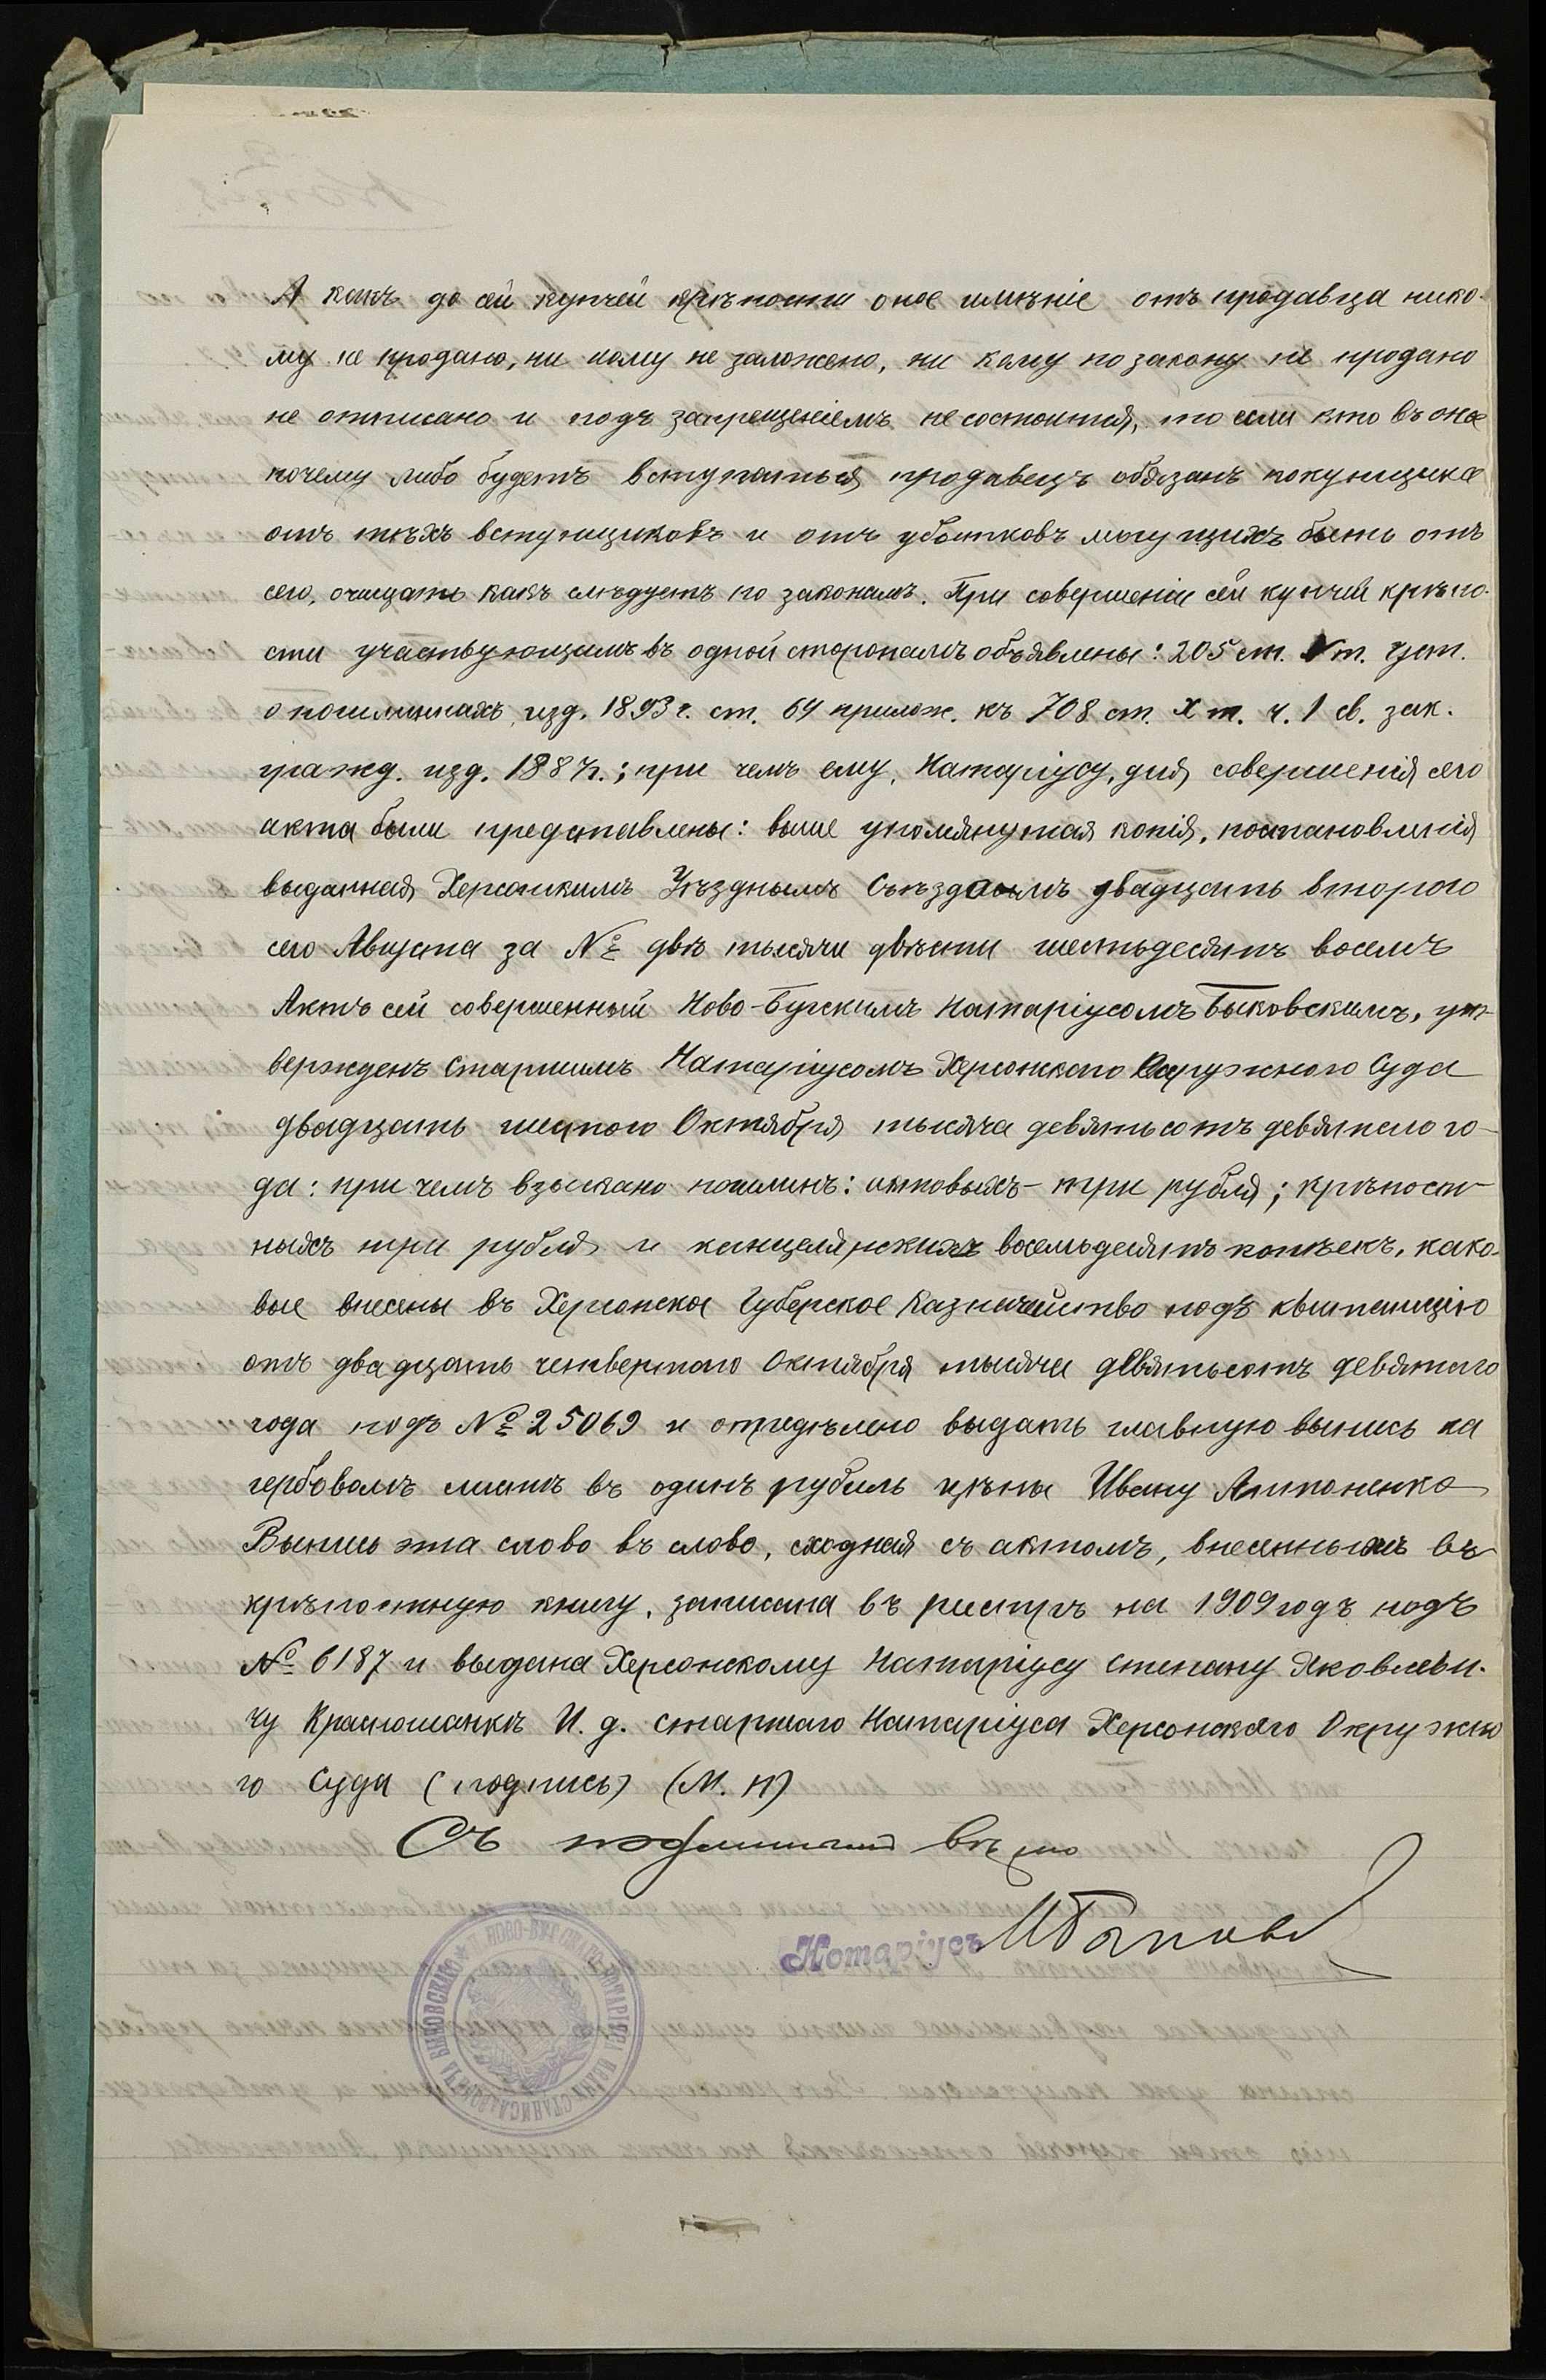 А какъ до сей купчей крѣпости оное имѣніе отъ продавца нико-
му не продано, ни кому не заложено, ни кому по закону не продано
не отписано и подъ запрещеніемъ не состоитъ, то если кто въ оное
почему либо будетъ вступаться, продавецъ обязанъ покупщика
отъ тѣхъ вступщиковъ и отъ убытковъ могущихъ быть отъ
сего, очищать какъ слѣдуетъ по законамъ. При совершеніи сей купчей крѣпо-
сти участвующимъ въ одной сторонамъ объявлены: 205 ст. V т. уст.
о пошлинахъ изд. 1893 г. ст. 64 прилож. къ 708 ст. X т. ч. 1 св. зак.
гражд. изд. 1887г.; при чемъ ему, Натаріусу, для совершенія сего
акта были представлены: выше упомянутая копія, постановленія
выданная Херсонкимъ Уѣзднымъ Съѣздомъ двадцать второго
сего Августа за № двѣ тысячи двѣсти шестьдесятъ восемъ
Актъ сей совершенный Ново-Бугскимъ Натаріусомъ Быковскимъ, ут-
вержденъ Старшимъ Натаріусомъ Херсонскаго Окружного Суда
двадцать шестого Октября тысяча девятьсотъ девятаго го-
да: при чемъ взыскано пошлинъ: актовыхъ - три рубля; крѣпост-
ныхъ три рубля и канцелярскихъ восемьдесятъ копѣекъ, како-
вые внесены въ Херсонское Губерское Казначейство подъ квитанцію
отъ двадцать четвертаго Октября тысяча девятьсотъ девятаго
года подъ № 25069 и опредѣлено выдать главную выпись на
гербовомъ листѣ въ одинъ рубль цѣны Ивану Антоненко
Выпись эта слово въ слово, сходная съ актомъ, внесеннымъ въ
крѣпостную книгу, записана въ реестръ на 1909 годъ подъ
№ 6187 и выдана Херсонскому Натаріусу Степану Яковлеви-
чу Красношапкѣ И. д. Старшаго Натаріуса Херсонскаго Окружно
го Суда (подпись) (М. П)
Съ подлинной вѣрно
Нотаріусъ